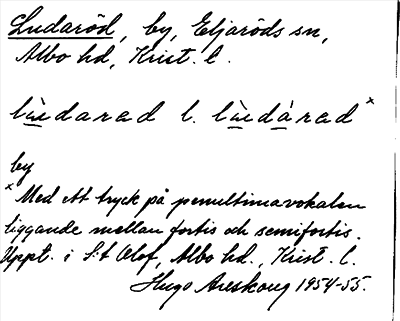 Ludaröd, by, Eljaröds sn,
Albo hd, Krist. l.
lùdarad l. lùdàrad ˣ
by
ˣ Med ett tryck på penultimavokalen
liggande mellan fortis och semifortis.
Uppt. i S:t Olof, Albo hd., Krist. l.
Hugo Areskoug 1954-55.